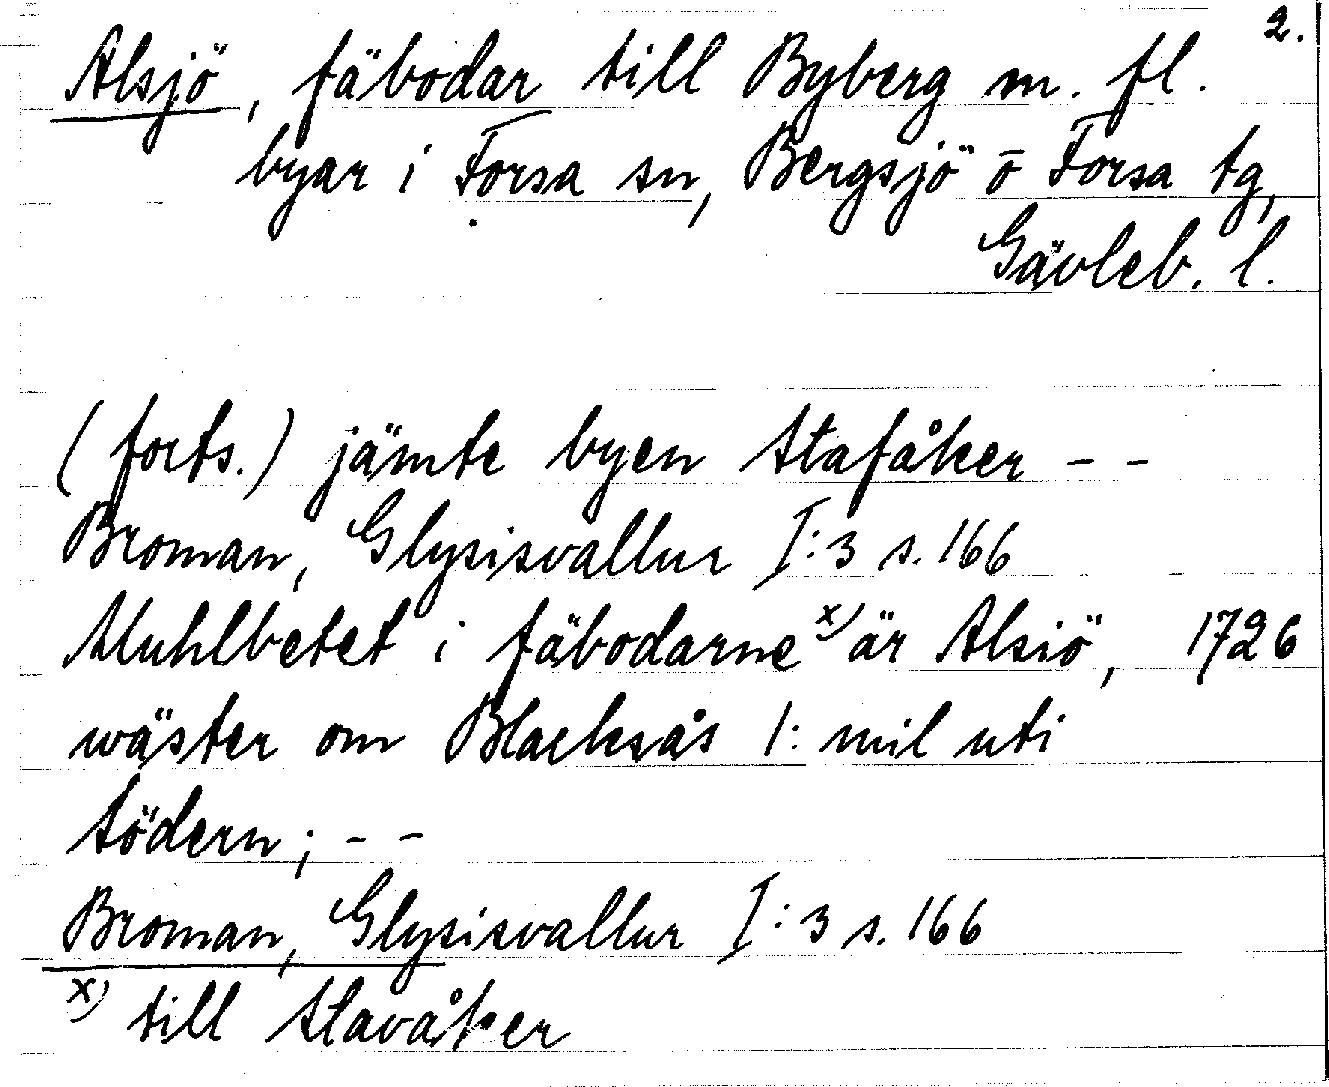 2.
Alsjö, fäbodar till Byberg m. fl.
byar i Forsa sn, Bergsjö o Forsa tg,
Gävleb. l.
(forts.) jämte byen Stafåker - -
Broman, Glysisvallur I:3 s. 166
Muhlbetet i fäbodarne x) är Alsiö, 1726
wäster om Blacksås 1: mil uti
södern; - -
Broman, Glysisvallur I:3 s. 166
x) till Stavåker